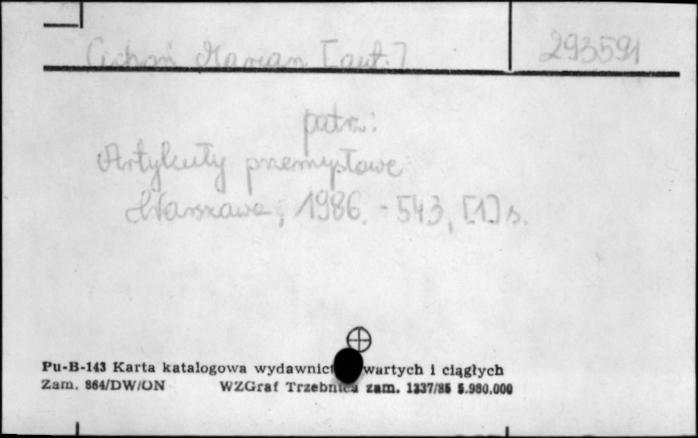 Cichoń Marian [aut.] 293591
patrz:
Artykuły przemysłowe
Warszawa, 1986. - 543, [1] s.
Pu-B-143 Karta katalogowa wydawnict wartych i ciągłych
Zam. 864/DW/ON WZGraf Trzebnica zam. 1337/85 5.980.000